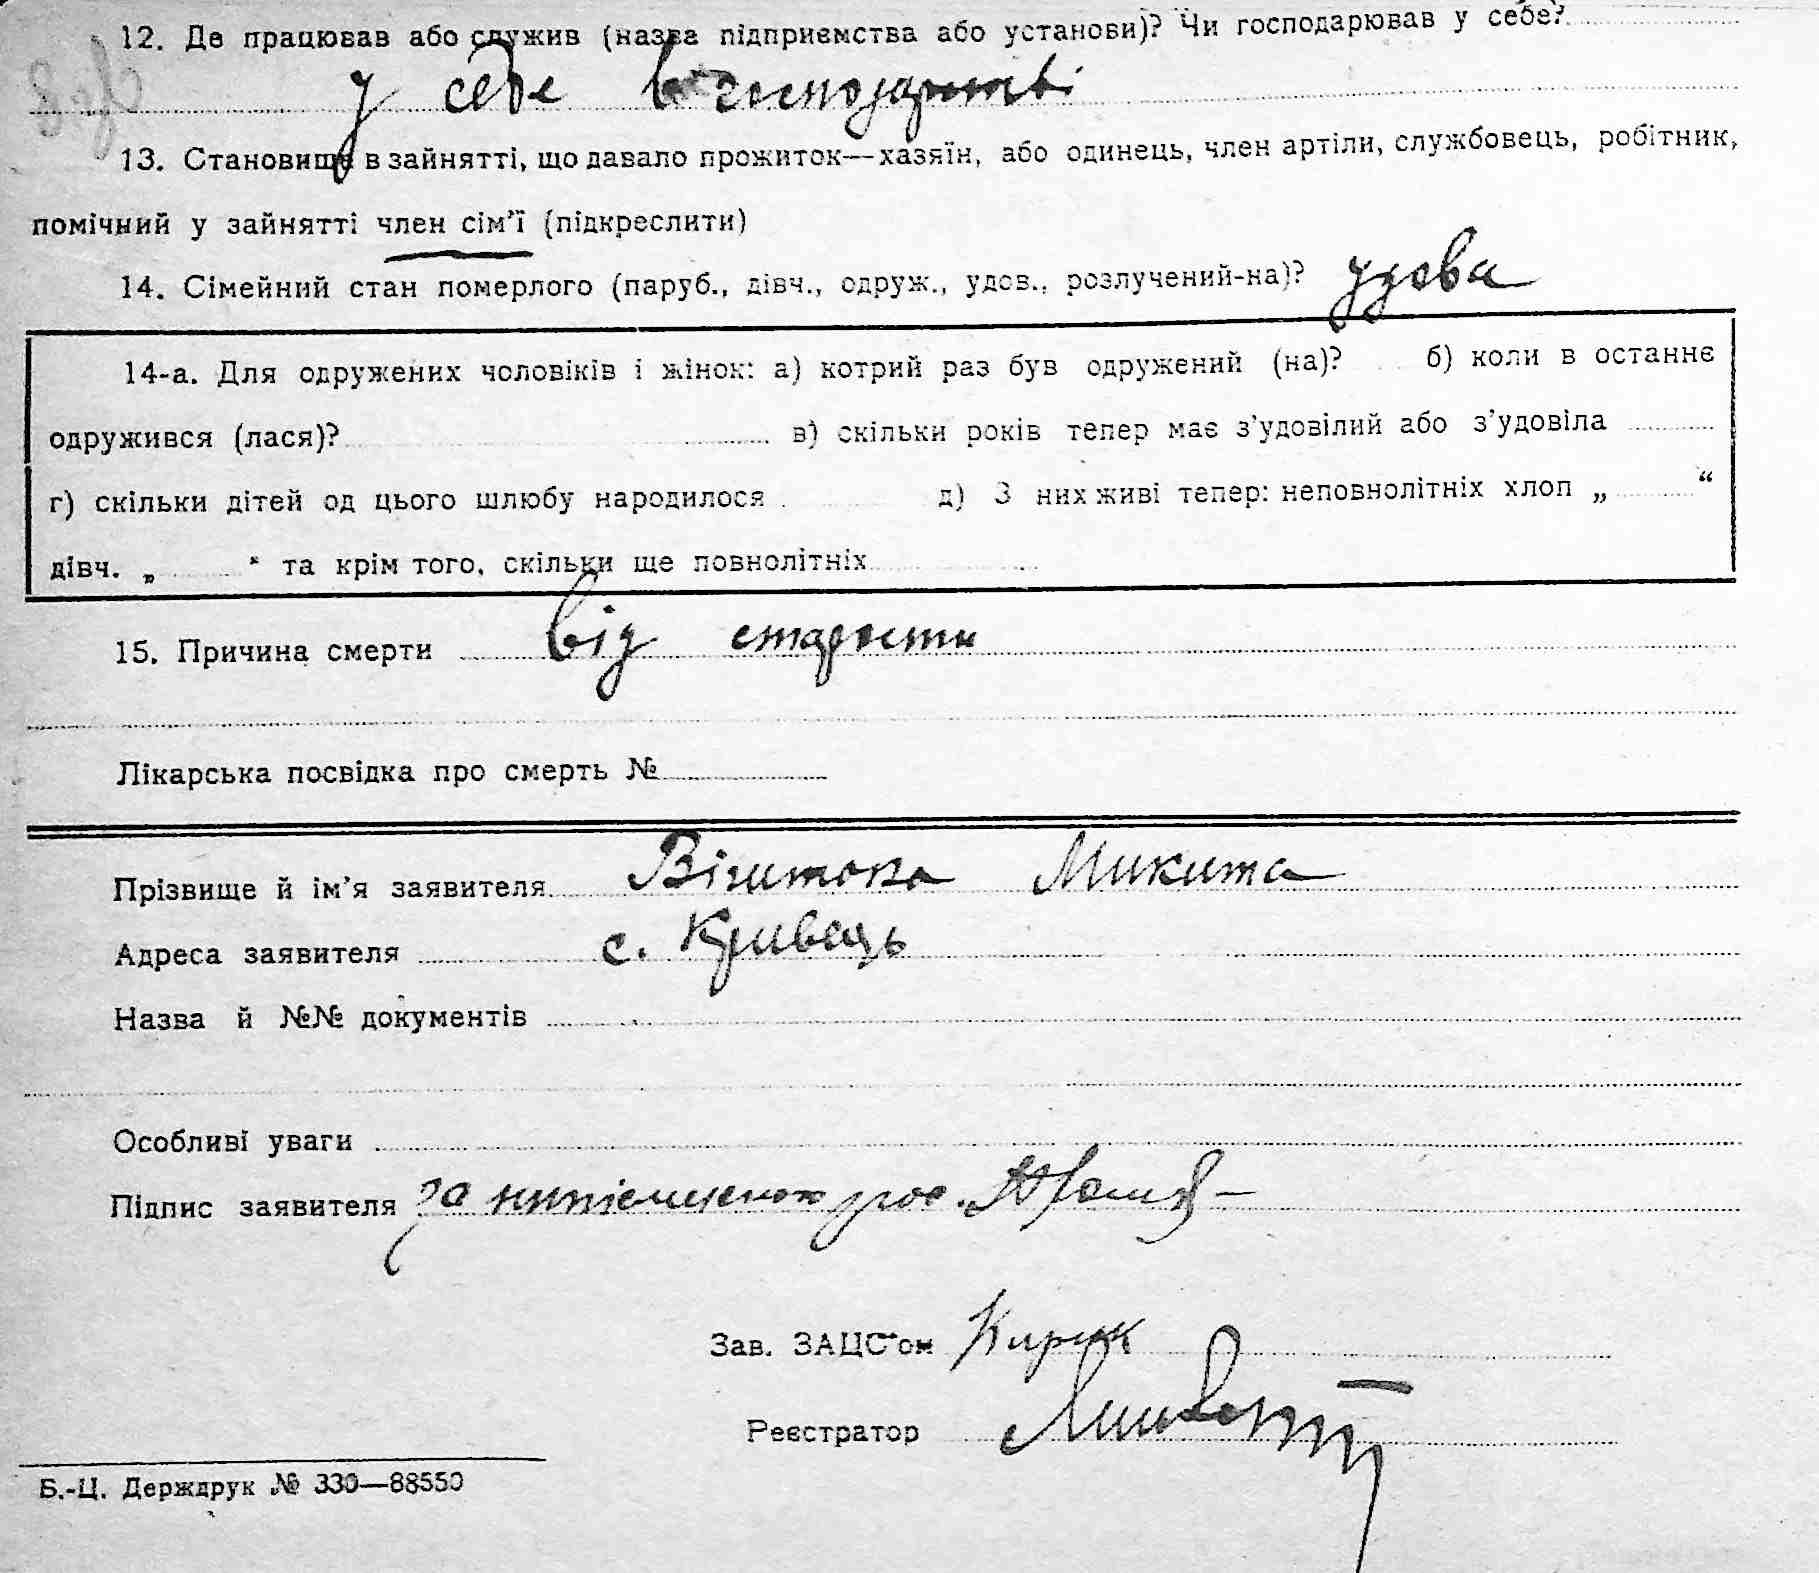 12. Де працював або служив (назва підприємства або установи)? Чи господарював у себе?
у себе в господарстві
13. Становище в зайнятті, що давало прожиток—хазяїн, або одинець, член артіли, службовець, робітник,
помічний у зайнятті член сім’ї (підкреслити)
14. Сімейний стан померлого (паруб., дівч., одруж., удов., розлучений-на)? удова
14-а. Для одружених чоловіків і жінок: а) котрий раз був одружений (на)? б) коли в останнє
одружився (лася)? в) скільки років тепер має з’удовілий або з’удовіла
г) скільки дітей од цього шлюбу народилося д) З них живі тепер: неповнолітніх хлоп „ “
дівч. „ “ та крім того, скільки ще повнолітніх
15. Причина смерти від старости
Лікарська посвідка про смерть №
Прізвище й ім’я заявителя Микита
Адреса заявителя с. Кривець
Назва й №№ документів
Особливі уваги
Підпис заявителя за
Зав. ЗАЦС’ом Кирик
Реєстратор
Б.-Ц. Держдрук № 330—88550